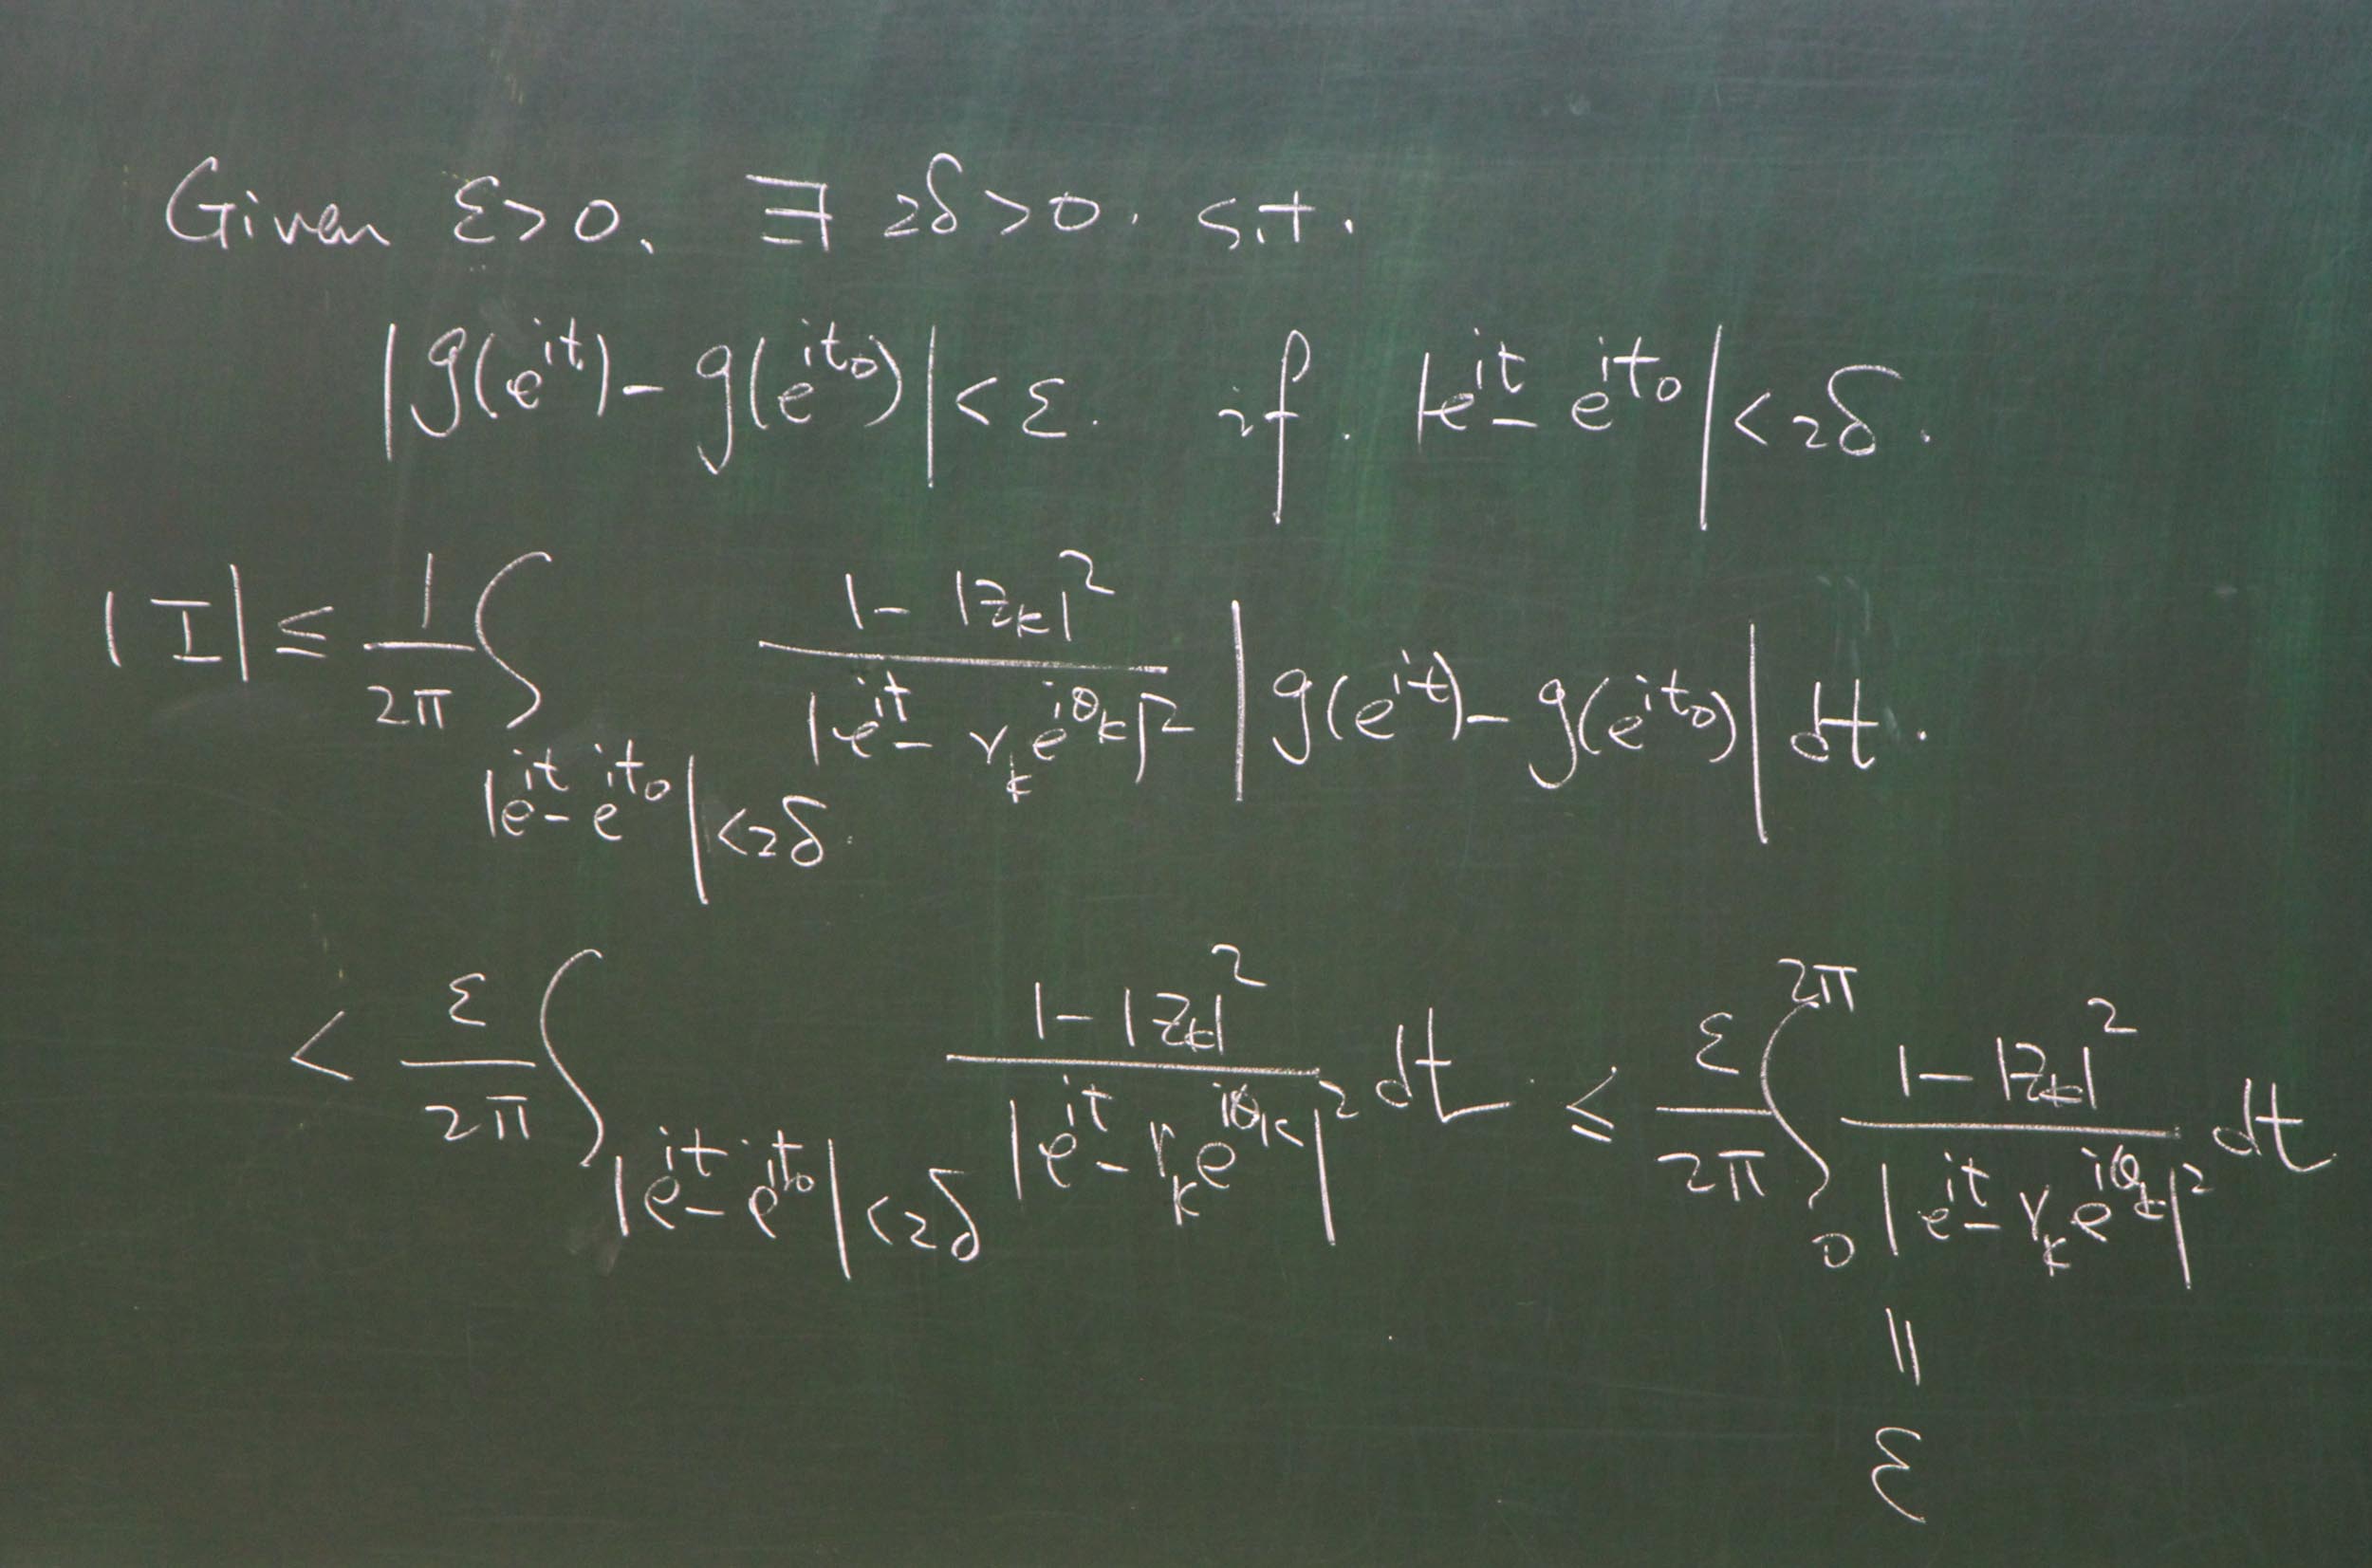 Given ε>0. ∃ 2δ>0. s.t.
|g(e^{it}) - g(e^{it_0})| < ε. if. |e^{it} - e^{it_0}| < 2δ.
|I| ≤ \frac{1}{2π} ∫_{|e^{it} - e^{it_0}| < 2δ.} \frac{1 - |z_k|^2}{|e^{it} - r_k e^{iθ_k}|^2} |g(e^{it}) - g(e^{it_0})| dt.
< \frac{ε}{2π} ∫_{|e^{it} - e^{it_0}| < 2δ} \frac{1 - |z_k|^2}{|e^{it} - r_k e^{iθ_k}|^2} dt ≤ \frac{ε}{2π} ∫_0^{2π} \frac{1 - |z_k|^2}{|e^{it} - r_k e^{iθ_k}|^2} dt
||
ε